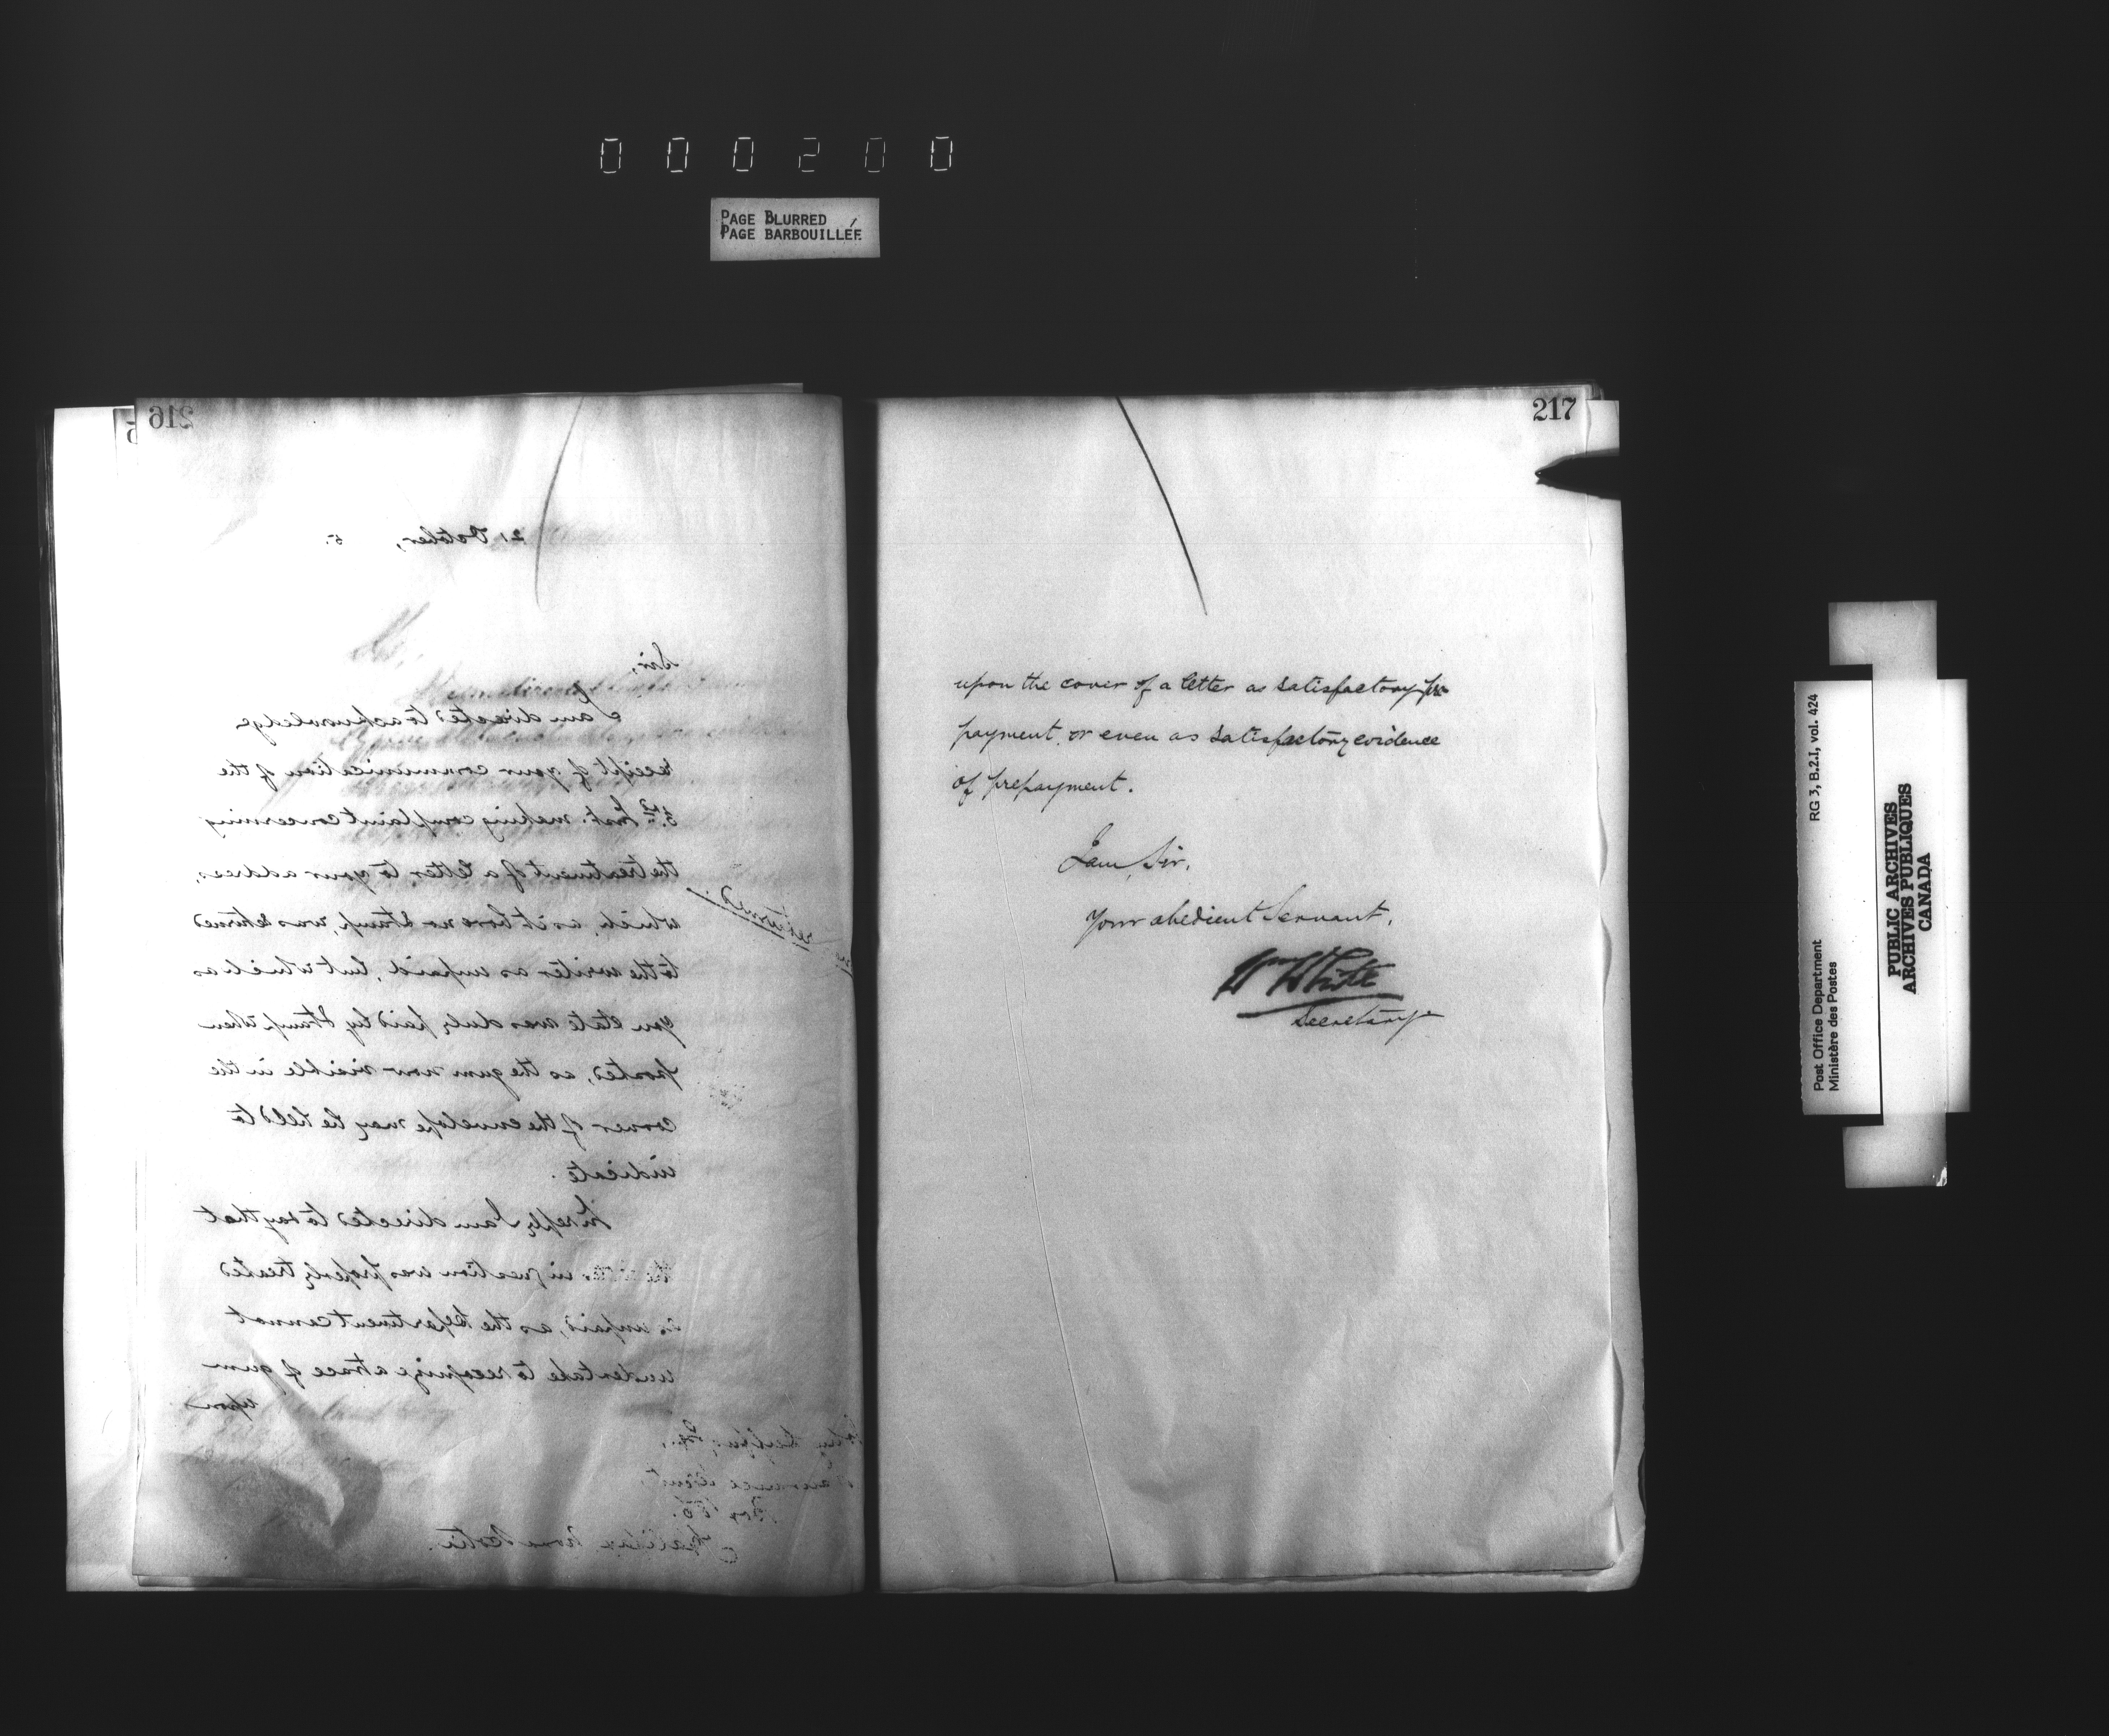 000200
PAGE BLURRED
PAGE BARBOUILLÉE
216
21 October, 5.
Sir,
I am directed to acknowledge
receipt of your communication of the
3rd Inst. making complaint concerning
the treatment of a letter to your address,
which, as it bore no stamp, was returned
to the writer as unpaid, but which as
you state was duly paid by stamp when
posted, as the gum now visible in the
corner of the envelope may be held to
indicate.
In reply I am directed to say that
the letter in question was properly treated
as unpaid, as the Department cannot
undertake to recognize a trace of gum
upon
Box 186.
Halifax Nova Scotia.
returned
217
upon the cover of a letter as satisfactory pre
payment, or even as satisfactory evidence
of prepayment.
I am, Sir,
Your obedient Servant,
Wm White
Secretary
RG 3, B.2.I, vol. 424
Post Office Department
Ministère des Postes
PUBLIC ARCHIVES
ARCHIVES PUBLIQUES
CANADA